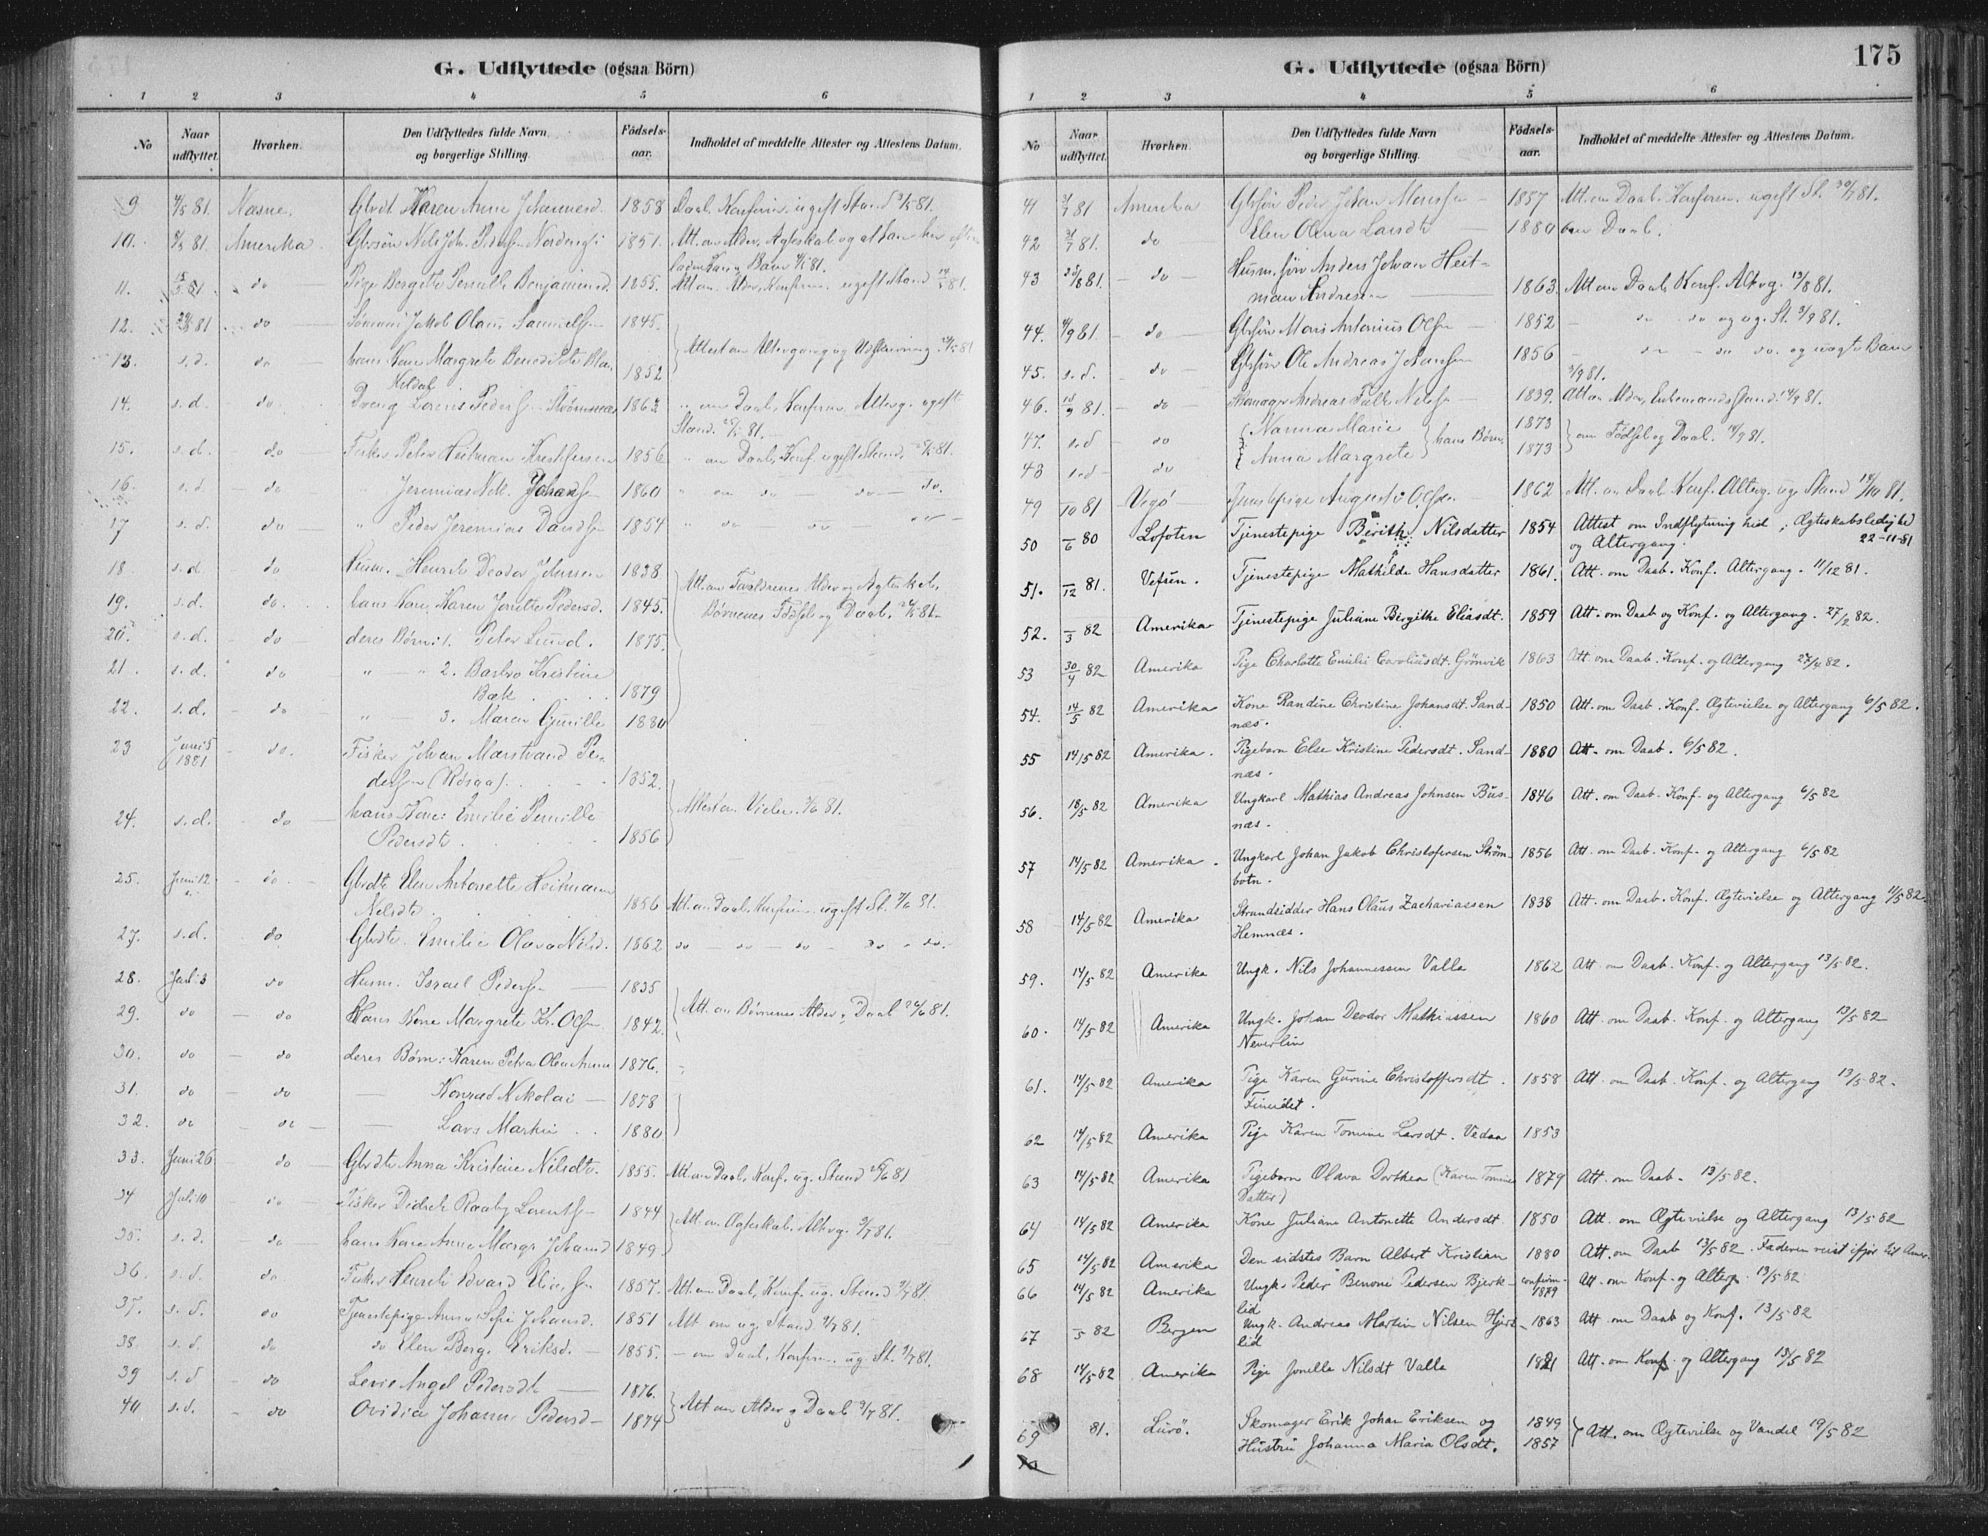 G. Udflyttede (ogsaa Börn)
1 2 3 4 5 6
No Naar udflyttet. Hvorhen. Den Udflyttedes fulde Navn og borgerlige Stilling. Födsels-aar. Indholdet af meddelte Attester og Attestens Datum.
9 81. Næsne. Gbrdt. Karen Anne Johannesd. 1858 Daab, Konfirm. ugift Stand 81.
10. 81 Amerika Gbrsön Nels Joh. Peders. 1851. Att. om Alder, Ægteskab og at han her efter
lader Kone og Barn 81.
11. do Pige Bergithe Pernille Benjaminsd 1855. Att. om Alder, Konfirm. ugift Stand 81.
12. 81 do Jakob Olaus Samuels. 1845.
13. s.d. do hans Kone Margrete 1852 Attest om Altergang og Udskrivning 81
14. s.d. do Dreng Lorens Peders. Strömsnæs 1862 " om Daab, Konfirm. Alterg. ugift
Stand. 81.
15. s.d. do Fisker Peter Heitman Kristofersen 1856 " om Daab, Konf. ugift Stand. 81.
16. s.d. do Jeremias Nik. Johans. 1860 " om do do do.
17 s.d. do " Peder Jeremias Davids. 1854 " do do do
18. s.d do Husm. Henrik Deodor Johnsen 1838
19. s.d. do. hans Kone, Karen Jonette Pedersd. 1845. Att. om Forældrenes Alder og Ægteskab,
Börnenes Födsel og Daab. 81.
20. s.d. do deres Börn: 1. Peter Lund. 1875.
21. s.d. do " " 2. Barbro Kristine
Bæk 1879
22. s.d. do " 3. Maren Gurille 1880
23 Juni 5 1881 do. Fisker Johan Marstrand Pe-
dersen (Rösaa). 1852.
24. s.d. do hans Kone: Emilie Pernille
Pedersdt. 1856 Attest om Vielse. 81.
25. Juni 12 do. Gbrdt. Elen Antonette Heitmann
Nelsdt. 1856 Att. om Daab, Konfirm. ugift St. 81.
27. s.d. do Gbrdt. Emilie Olava Nilsd. 1862 do do do do do.
28. Juli 3 do Husm. Israel Peders. 1835
29. do do Hans Kone Margrete Kr. Ols. 1842. Att. om Börnenes Alder og Daab 81.
30. do do deres Börn: Karen Petra 1876.
31. do do Konrad Nikolai 1878
32. do do Lars Martin 1880
33. Juni 26 do Gbrdt. Anna Kristine Nilsdt. 1855. Att. om Daab, Konf. ug. Stand 81
34 Juli 10 do Fisker Didrik Raaby Lorents. 1844
35. s.d. do hans Kone Anna Margr. Johansd 1849 Att. om Ægteskab, Altvg. 81.
36. s.d. do Fisker Henrik Edvard 1857. Att. om Daab, Konf. ug. Stand 81.
37. s.d. do Tjenestepige Anna Sofie Johansd. 1851 Att om ug. Stand 81.
38. s.d. do do Elen Berg. Eriksd. 1855. om Daab, Konfirm. ug. St. 81.
39 s.d do Lovise Angel Pedersdt. 1876.
40 s.d. do Ovidia Johanne Pedersd. 1874 Att om Alder og Daab 81.
175
G. Udflyttede (ogsaa Börn)
1 2 3 4 5 6
No Naar udflyttet. Hvorhen. Den Udflyttedes fulde Navn og borgerlige Stilling. Födsels-aar. Indholdet af meddelte Attester og Attestens Datum.
41 81 Amerika Gbrsön Peder Johan Mons. 1857 Att. om Daab, Konfirm. ugift St. 81.
42 81. do Elen Olava Larsdt. 1880 om Daab.
43 81. do Husm. sön Anders Johan Heit-
man Andresen 1863. Att om Daab, Konf. Altvg. 13/8 81.
44. 81. do Gbrsön Mons Antonius Ols. 1852 do do og ug. St. 3/9 81.
45. s.d. do Gbrsön Ole Andreas Johans. 1856 do do do. og
3/9 81.
46. 81. do Skomager Andreas Falk Nils. 1839. Att om Alder, Enkemandsstand. 81.
47. s.d do Nanna Marie 1873
48 s.d do Anna Margrete hans Börn 1873 om Födsel og Daab. 81.
49 /10 81 Vegö Tjenestepige 1862 Att. om Daab, Konf. Alterg. ug. Stand 81.
50 /6 80 Lofoten Tjenestepige Berith Nilsdatter 1854 Attest om Indflytning hid, Ægteskabsledighed
og Altergang. 22-11-81
51. /12 81. Vefsen. Tjenestepige Mathilde Hansdatter 1861. Att. om Daab. Konf. Altergang. 11/12 81.
52. /3 82 Amerika Tjenestepige Juliane Bergithe Eliasdt. 1859 Att. om Daab og Konf. og Altergang. 27/2 82.
53 30/4 82 Amerika Pige Charlotte Emilie Caroliusdt. Grönvik 1863 Att. om Daab. Konf. og Altergang 27/4 82.
54. 14/5 82 Amerika Kone Randine Christine Johansdt. Sand-
næs. 1850 Att. om Daab. Konf. Ægtevielse og Altergang 6/5 82.
55 14/5 82 Amerika. Pigebarn Else Kristine Pedersdt. Sand-
næs. 1880 Att. om Daab. 6/5 82.
56. 18/5 82 Amerika Ungkarl Mathias Andreas Johnsen Bus-
næs. 1846 Att. om Daab. Konf. og Altergang 6/5 82
57 14/5 82 Amerika. Ungkarl Johan Jakob Christofersen Ström-
botn. 1856 Att. om Daab. Konf. og Altergang 6/5 82
58 14/5 82 Amerika Strandsidder Hans Olaus Zachariassen
Hemnæs. 1838 Att. om Daab. Konf. Ægtevielse og Altergang 11/5 82.
59. 14/5 82 Amerika Ungk. Nils Johannessen Valla 1862 Att om Daab. Konf. og Altergang 13/5 82.
60. 14/5 82 Amerika Ungk. Johan Deodor Mathiassen
Neverlin 1860 Att om Daab. Konf. og Altergang 13/5 82
61. 14/5 82 Amerika Pige Karen Gurine Christoffersdt.
Finnidet. 1858 Att. om Daab. Konf. og Altergang 13/5 82.
62 14/5 82 Amerika Pige Karen Tomine Larsdt. Vedaa 1853
63 14/5 82 Amerika Pigebarn Olava Dorthea (Karen Tomines
Datter) 1879 Att. om Daab. 13/5 82.
64 14/5 82 Amerika Kone Juliane Antonette Andersdt. 1850 Att. om Ægtevielse og Altergang 13/5 82
65 14/5 82 Amerika Den sidstes Barn Albert Kristian 1880 Att. om Daab 13/5 82. Faderen reist ifjor til Amer.
66 14/5 82 Amerika Ungk. Peder Benoni Pedersen Bjerk-
lid confirm. 1879 Att. om Konf. og Alterg. 13/5 82
67 /5 82 Bergen Ungk. Andreas Martin Nilsen Hjert-
lid 1863 Att om Daab og Konf. 13/5 82
68 14/5 82 Amerika Pige Jonelle Nilsdt Valla 1821 Att. om Konf. og Altergang 13/5 82
69 81. Lurö. Skomager Erik Johan Eriksen og 1849
Hustru Johanna Maria Olsdt. 1857 Att. om Ægtevielse og Vandel 19/5 82
70